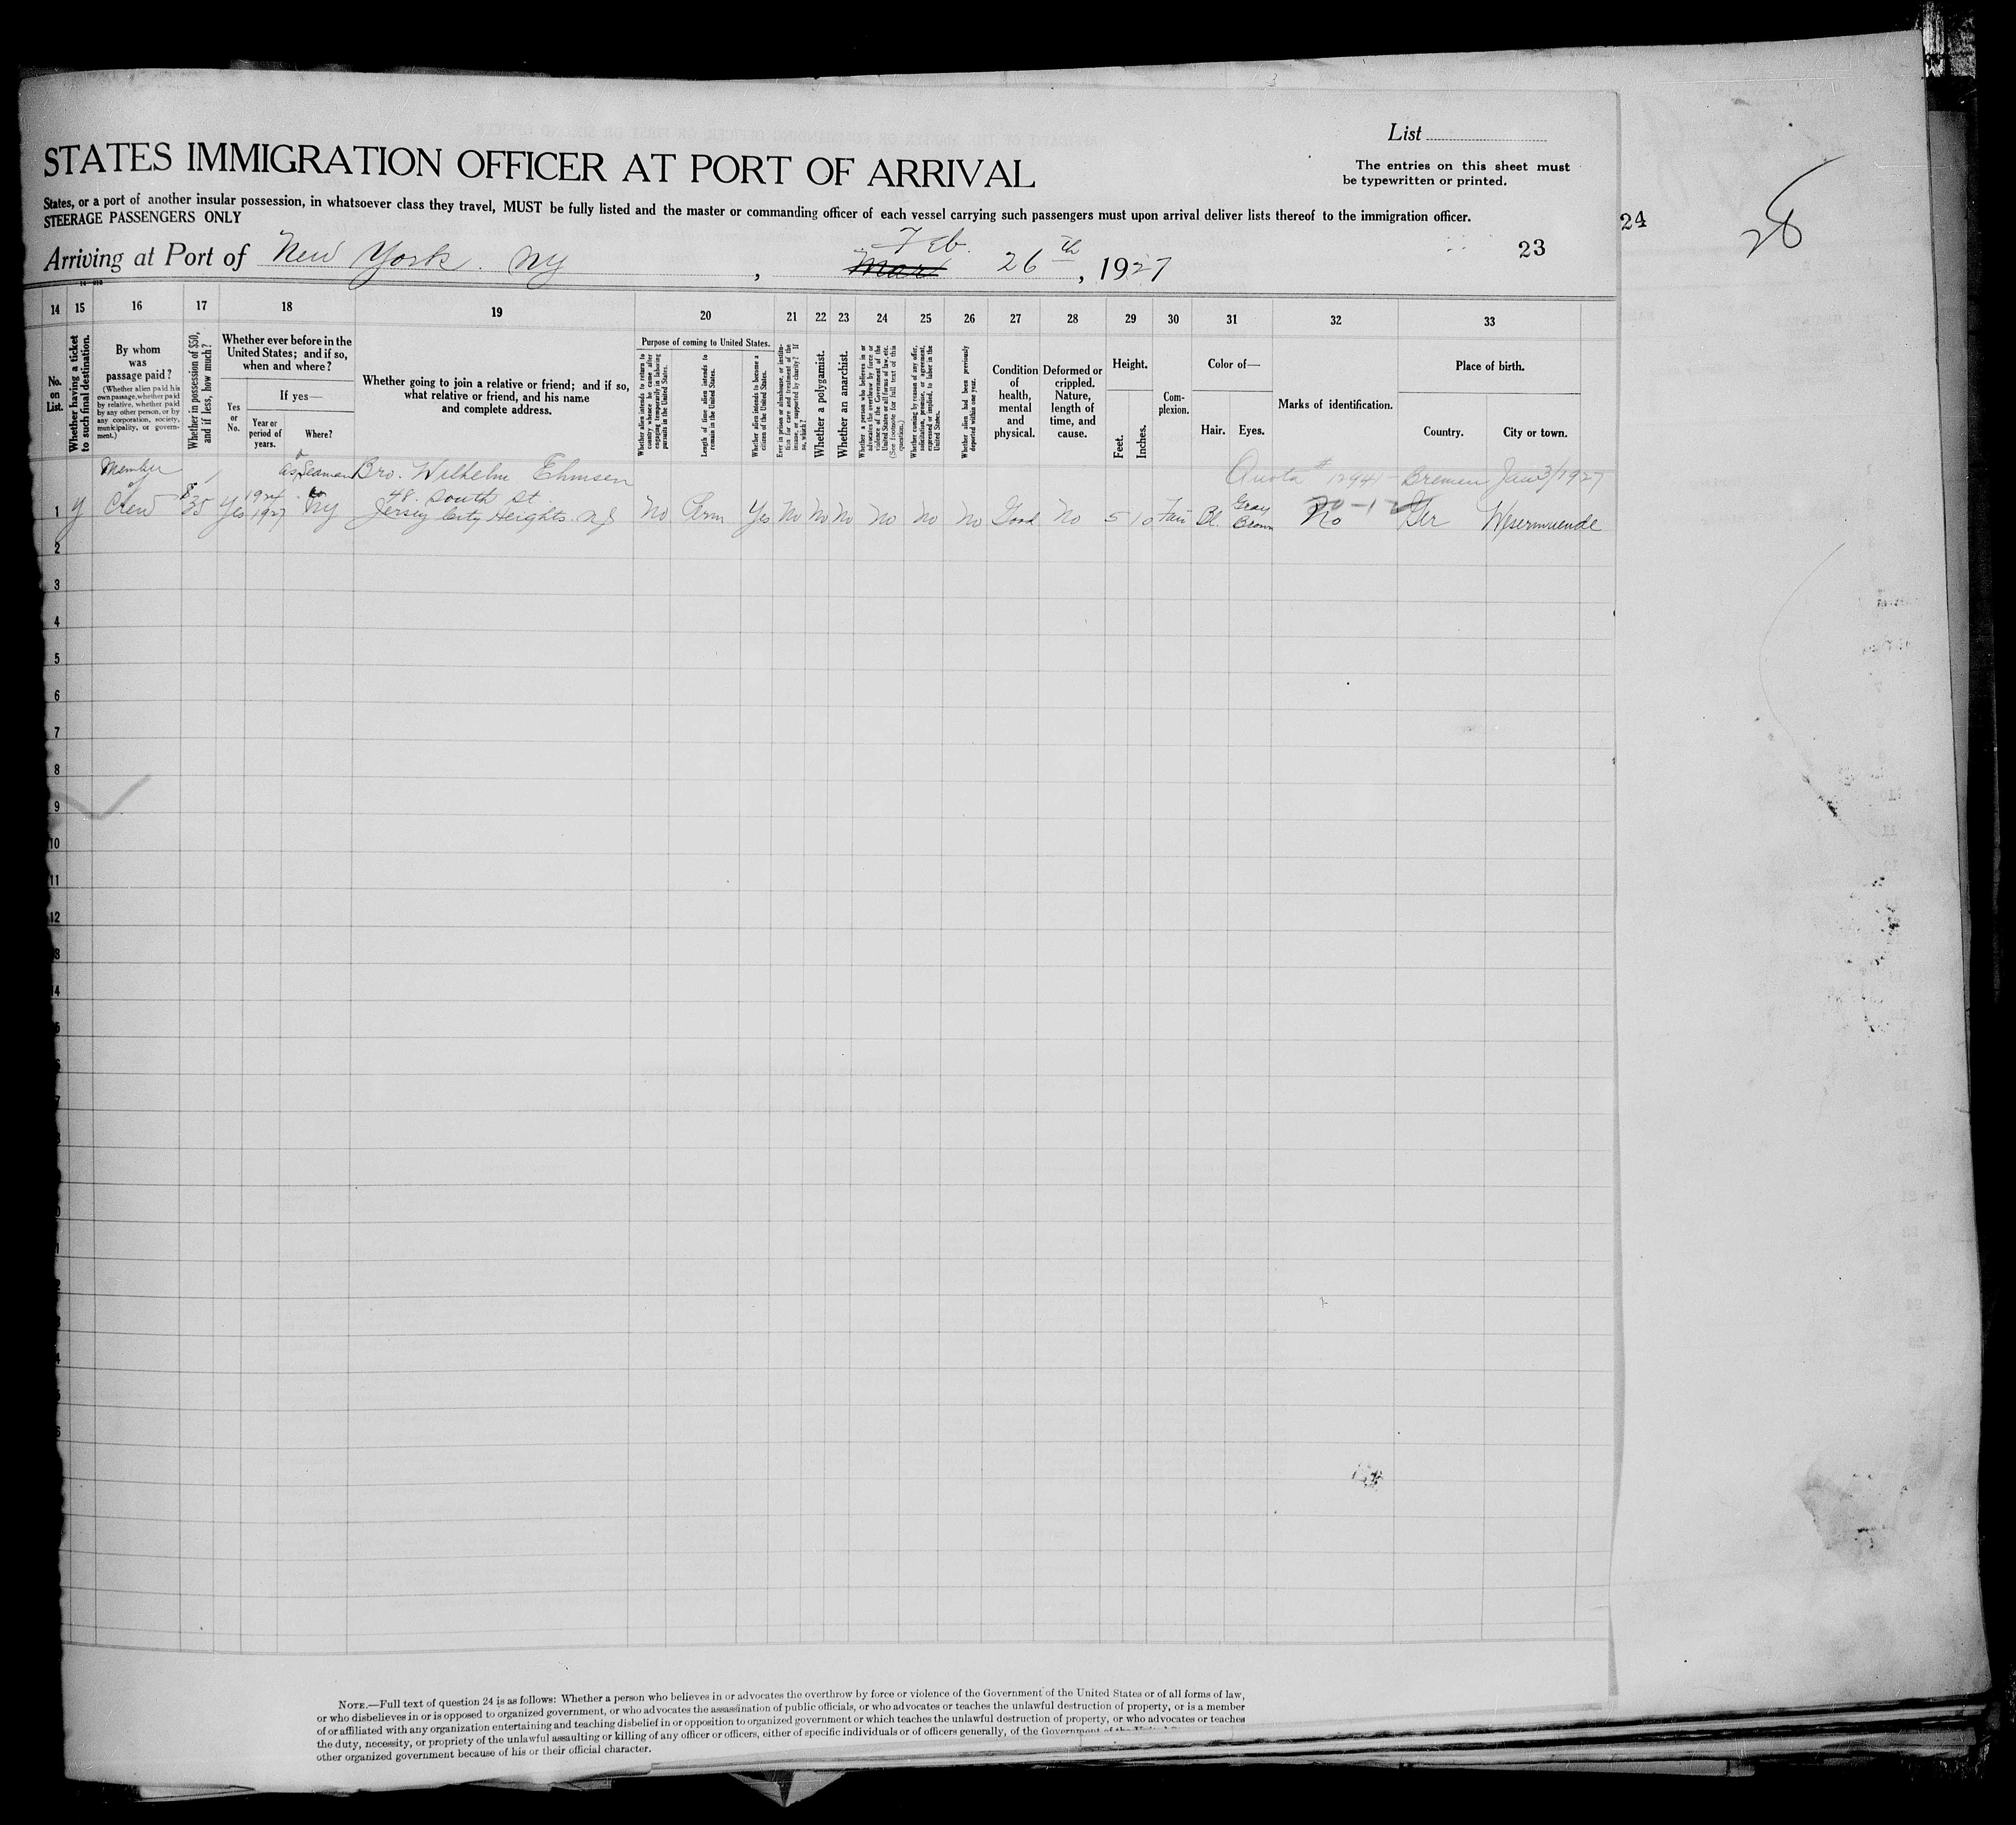 List
STATES IMMIGRATION OFFICER AT PORT OF ARRIVAL
The entries on this sheet must
be typewritten or printed.
States, or a port of another insular possession, in whatsoever class they travel, MUST be fully listed and the master or commanding officer of each vessel carrying such passengers must upon arrival deliver lists thereof to the immigration officer.
STEERAGE PASSENGERS ONLY
24
28
23
Arriving at Port of New York. NY, Mar Feb. 26th, 1927
14 15 16 17 18 19 20 21 22 23 24 25 26 27 28 29 30 31 32 33
No. on List.
Whether having a ticket to such final destination.
By whom was passage paid?
(Whether alien paid his own passage, whether paid by relative, whether paid by any other person, or by any corporation, society, municipality, or government.)
Whether in possession of $50, and if less, how much?
Whether ever before in the United States; and if so, when and where?
Yes or No.
If yes—
Year or period of years.
Where?
Whether going to join a relative or friend; and if so, what relative or friend, and his name and complete address.
Purpose of coming to United States.
Whether alien intends to return to country whence he came after engaging temporarily in laboring pursuits in the United States.
Length of time alien intends to remain in the United States.
Whether alien intends to become a citizen of the United States.
Ever in prison or almshouse, or institution for care and treatment of the insane, or supported by charity? If so, which?
Whether a polygamist.
Whether an anarchist.
Whether a person who believes in or advocates the overthrow by force or violence of the Government of the United States or all forms of law, etc. (See footnote for full text of this question.)
Whether coming by reason of any offer, solicitation, promise, or agreement, expressed or implied, to labor in the United States.
Whether alien had been previously deported within one year.
Condition of health, mental and physical.
Deformed or crippled. Nature, length of time, and cause.
Height.
Feet.
Inches.
Complexion.
Color of—
Hair.
Eyes.
Marks of identification.
Place of birth.
Country.
City or town.
Member as Seaman Bro. Wilhelm Ehmsen Quota # 12941 - Bremen Jan 3/1927
1924 48. South St. Gray
1 y Crew $35 Yes 1927 NY Jersey City Heights. NJ No Perm Yes No No No No No No Good No 5 10 Fair Bl. Brown No Ger Wesermuende
2
3
4
5
6
7
8
9
10
11
12
NOTE.—Full text of question 24 is as follows: Whether a person who believes in or advocates the overthrow by force or violence of the Government of the United States or of all forms of law,
or who disbelieves in or is opposed to organized government, or who advocates the assassination of public officials, or who advocates or teaches the unlawful destruction of property, or is a member
of or affiliated with any organization entertaining and teaching disbelief in or opposition to organized government or which teaches the unlawful destruction of property, or who advocates or teaches
the duty, necessity, or propriety of the unlawful assaulting or killing of any officer or officers, either of specific individuals or of officers generally, of the Government of the
other organized government because of his or their official character.